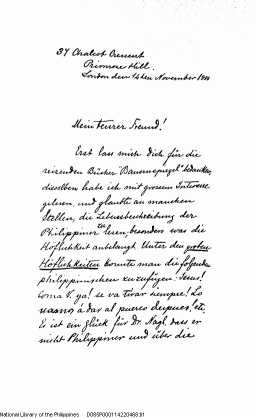 37 Chalcot Crescent
Primrose Hill.
London den 14ten November 1888
Mein teurer Freund!
Erst lass mich Dich für die
reizenden Bücher Bauernspiegel bedanken,
dieselben habe ich mit grossem Interesse
gelesen, und glaubte an manchen
Stellen, die Lebensbeschreibung der
Philippiner zu lesen, besonders was die
Höflichkeit anbelangt. Unter den groben
Höflichkeiten konnte man die folgenden
philippinischen zuzufügen: Jesus!
Coma V. ya! se va tirar siempre! Lo
vamos á dar al puerco despues! etc.
Es ist ein glück für Dr. Nagl, dass er
nicht Philippiner und über die
National Library of the Philippines